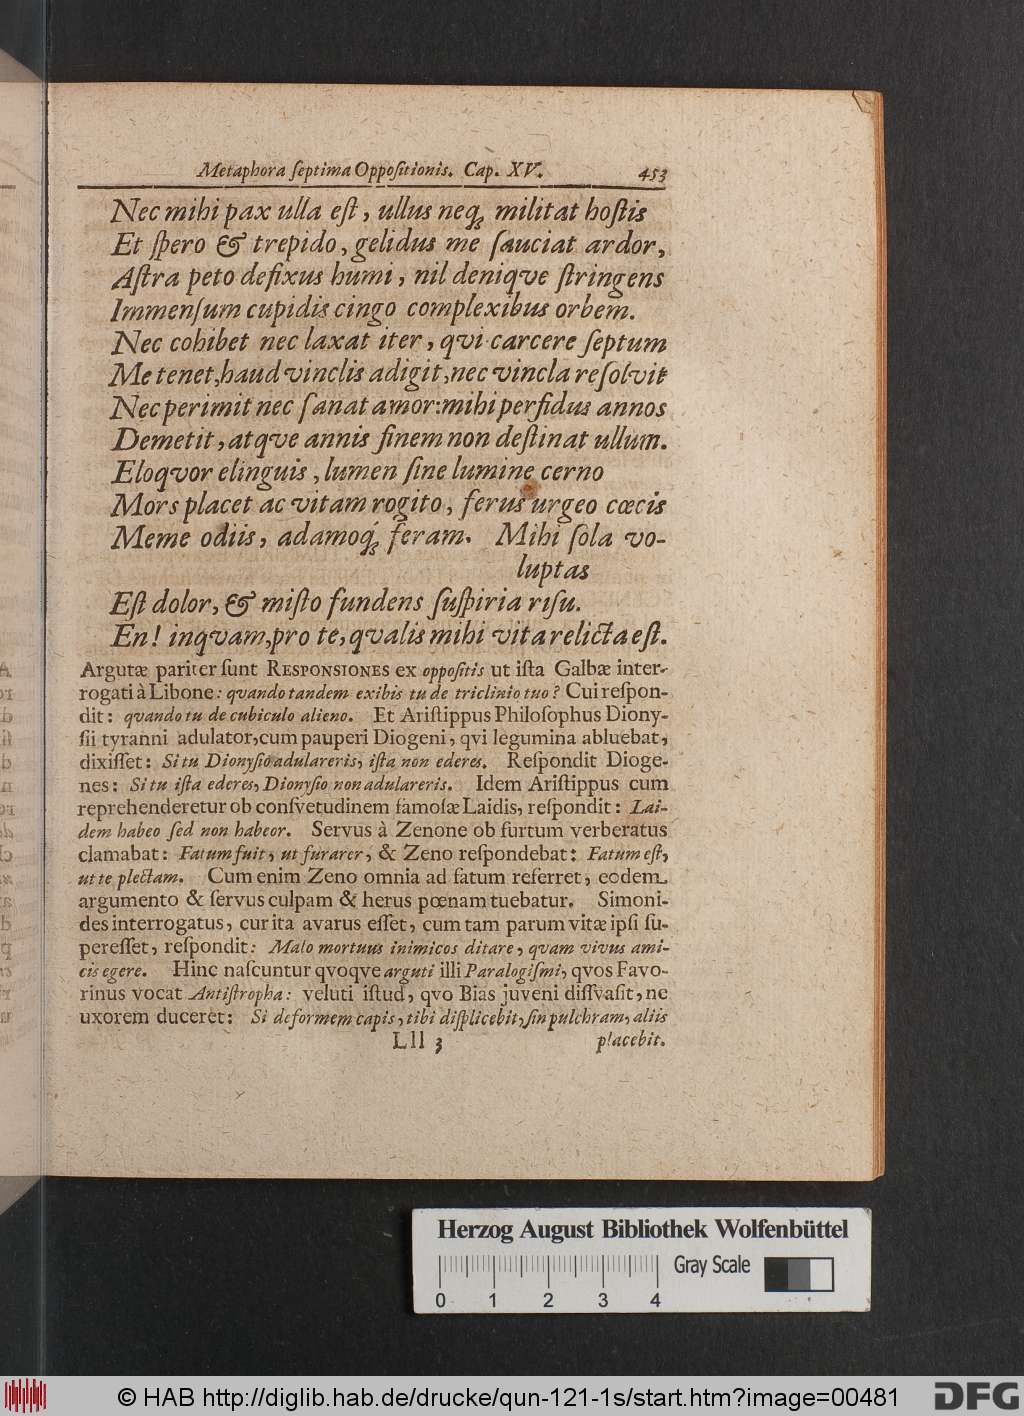 Metaphora ſeptima Oppoſitionis. Cap. XV. 453
Nec mihi pax ulla eſt, ullus neq; militat hoſtis
Et ſpero & trepido, gelidus me ſauciat ardor,
Aſtra peto defixus humi, nil deniqve ſtringens
Immenſum cupidis cingo complexibus orbem.
Nec cohibet nec laxat iter, qvi carcere ſeptum
Me tenet, haud vinclis adigit, nec vincla reſolvit
Nec perimit nec ſanat amor: mihi perfidus annos
Demetit, atqve annis finem non deſtinat ullum.
Eloqvor elinguis, lumen ſine lumine cerno
Mors placet ac vitam rogito, ferus urgeo cœcis
Meme odiis, adamoq́; feram. Mihi ſola vo-
luptas
Eſt dolor, & miſto fundens ſuſpiria riſu.
En! inqvam, pro te, qvalis mihi vita relicta eſt.
Argutæ pariter ſunt RESPONSIONES ex oppoſitis ut iſta Galbæ inter-
rogati à Libone: qvando tandem exibis tu de triclinio tuo? Cui reſpon-
dit: qvando tu de cubiculo alieno. Et Ariſtippus Philoſophus Diony-
ſii tyranni adulator, cum pauperi Diogeni, qvi legumina abluebat,
dixiſſet: Si tu Dionyſio adulareris, iſta non ederes. Reſpondit Dioge-
nes: Si tu iſta ederes, Dionyſio non adulareris. Idem Ariſtippus cum
reprehenderetur ob conſvetudinem famoſæ Laidis, reſpondit: Lai-
dem habeo ſed non habeor. Servus à Zenone ob furtum verberatus
clamabat: Fatum fuit, ut furarer, & Zeno reſpondebat: Fatum eſt,
ut te plectam. Cum enim Zeno omnia ad fatum referret, eodem
argumento & ſervus culpam & herus pœnam tuebatur. Simoni-
des interrogatus, cur ita avarus eſſet, cum tam parum vitæ ipſi ſu-
pereſſet, reſpondit: Malo mortuus inimicos ditare, qvam vivus ami-
cis egere. Hinc naſcuntur qvoqve arguti illi Paralogiſmi, qvos Favo-
rinus vocat Antiſtropha: veluti iſtud, qvo Bias juveni diſſvaſit, ne
uxorem duceret: Si deformem capis, tibi diſplicebit, ſin pulchram, aliis
Lll 3 placebit.
Herzog August Bibliothek Wolfenbüttel
Gray Scale
0 1 2 3 4
© HAB http://diglib.hab.de/drucke/qun-121-1s/start.htm?image=00481
DFG